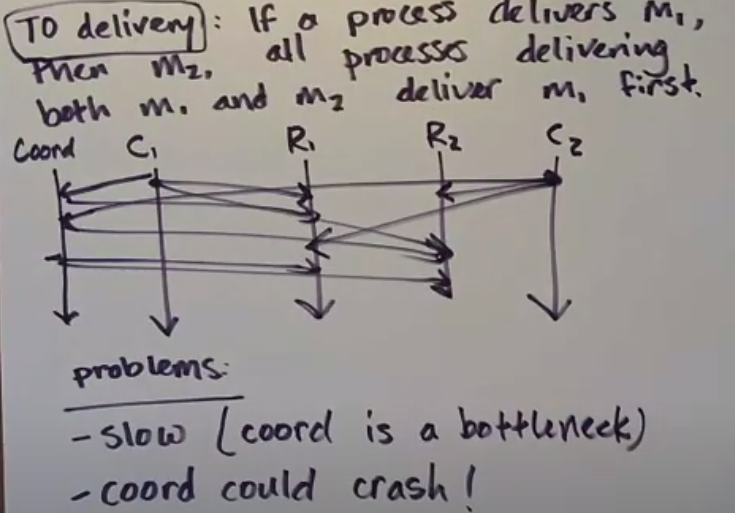 TO delivery: If a process delivers m₁,
then m₂, all processes delivering
both m₁ and m₂ deliver m₁ first.
Coord C₁ R₁ R₂ C₂
problems:
- slow (coord is a bottleneck)
- coord could crash!